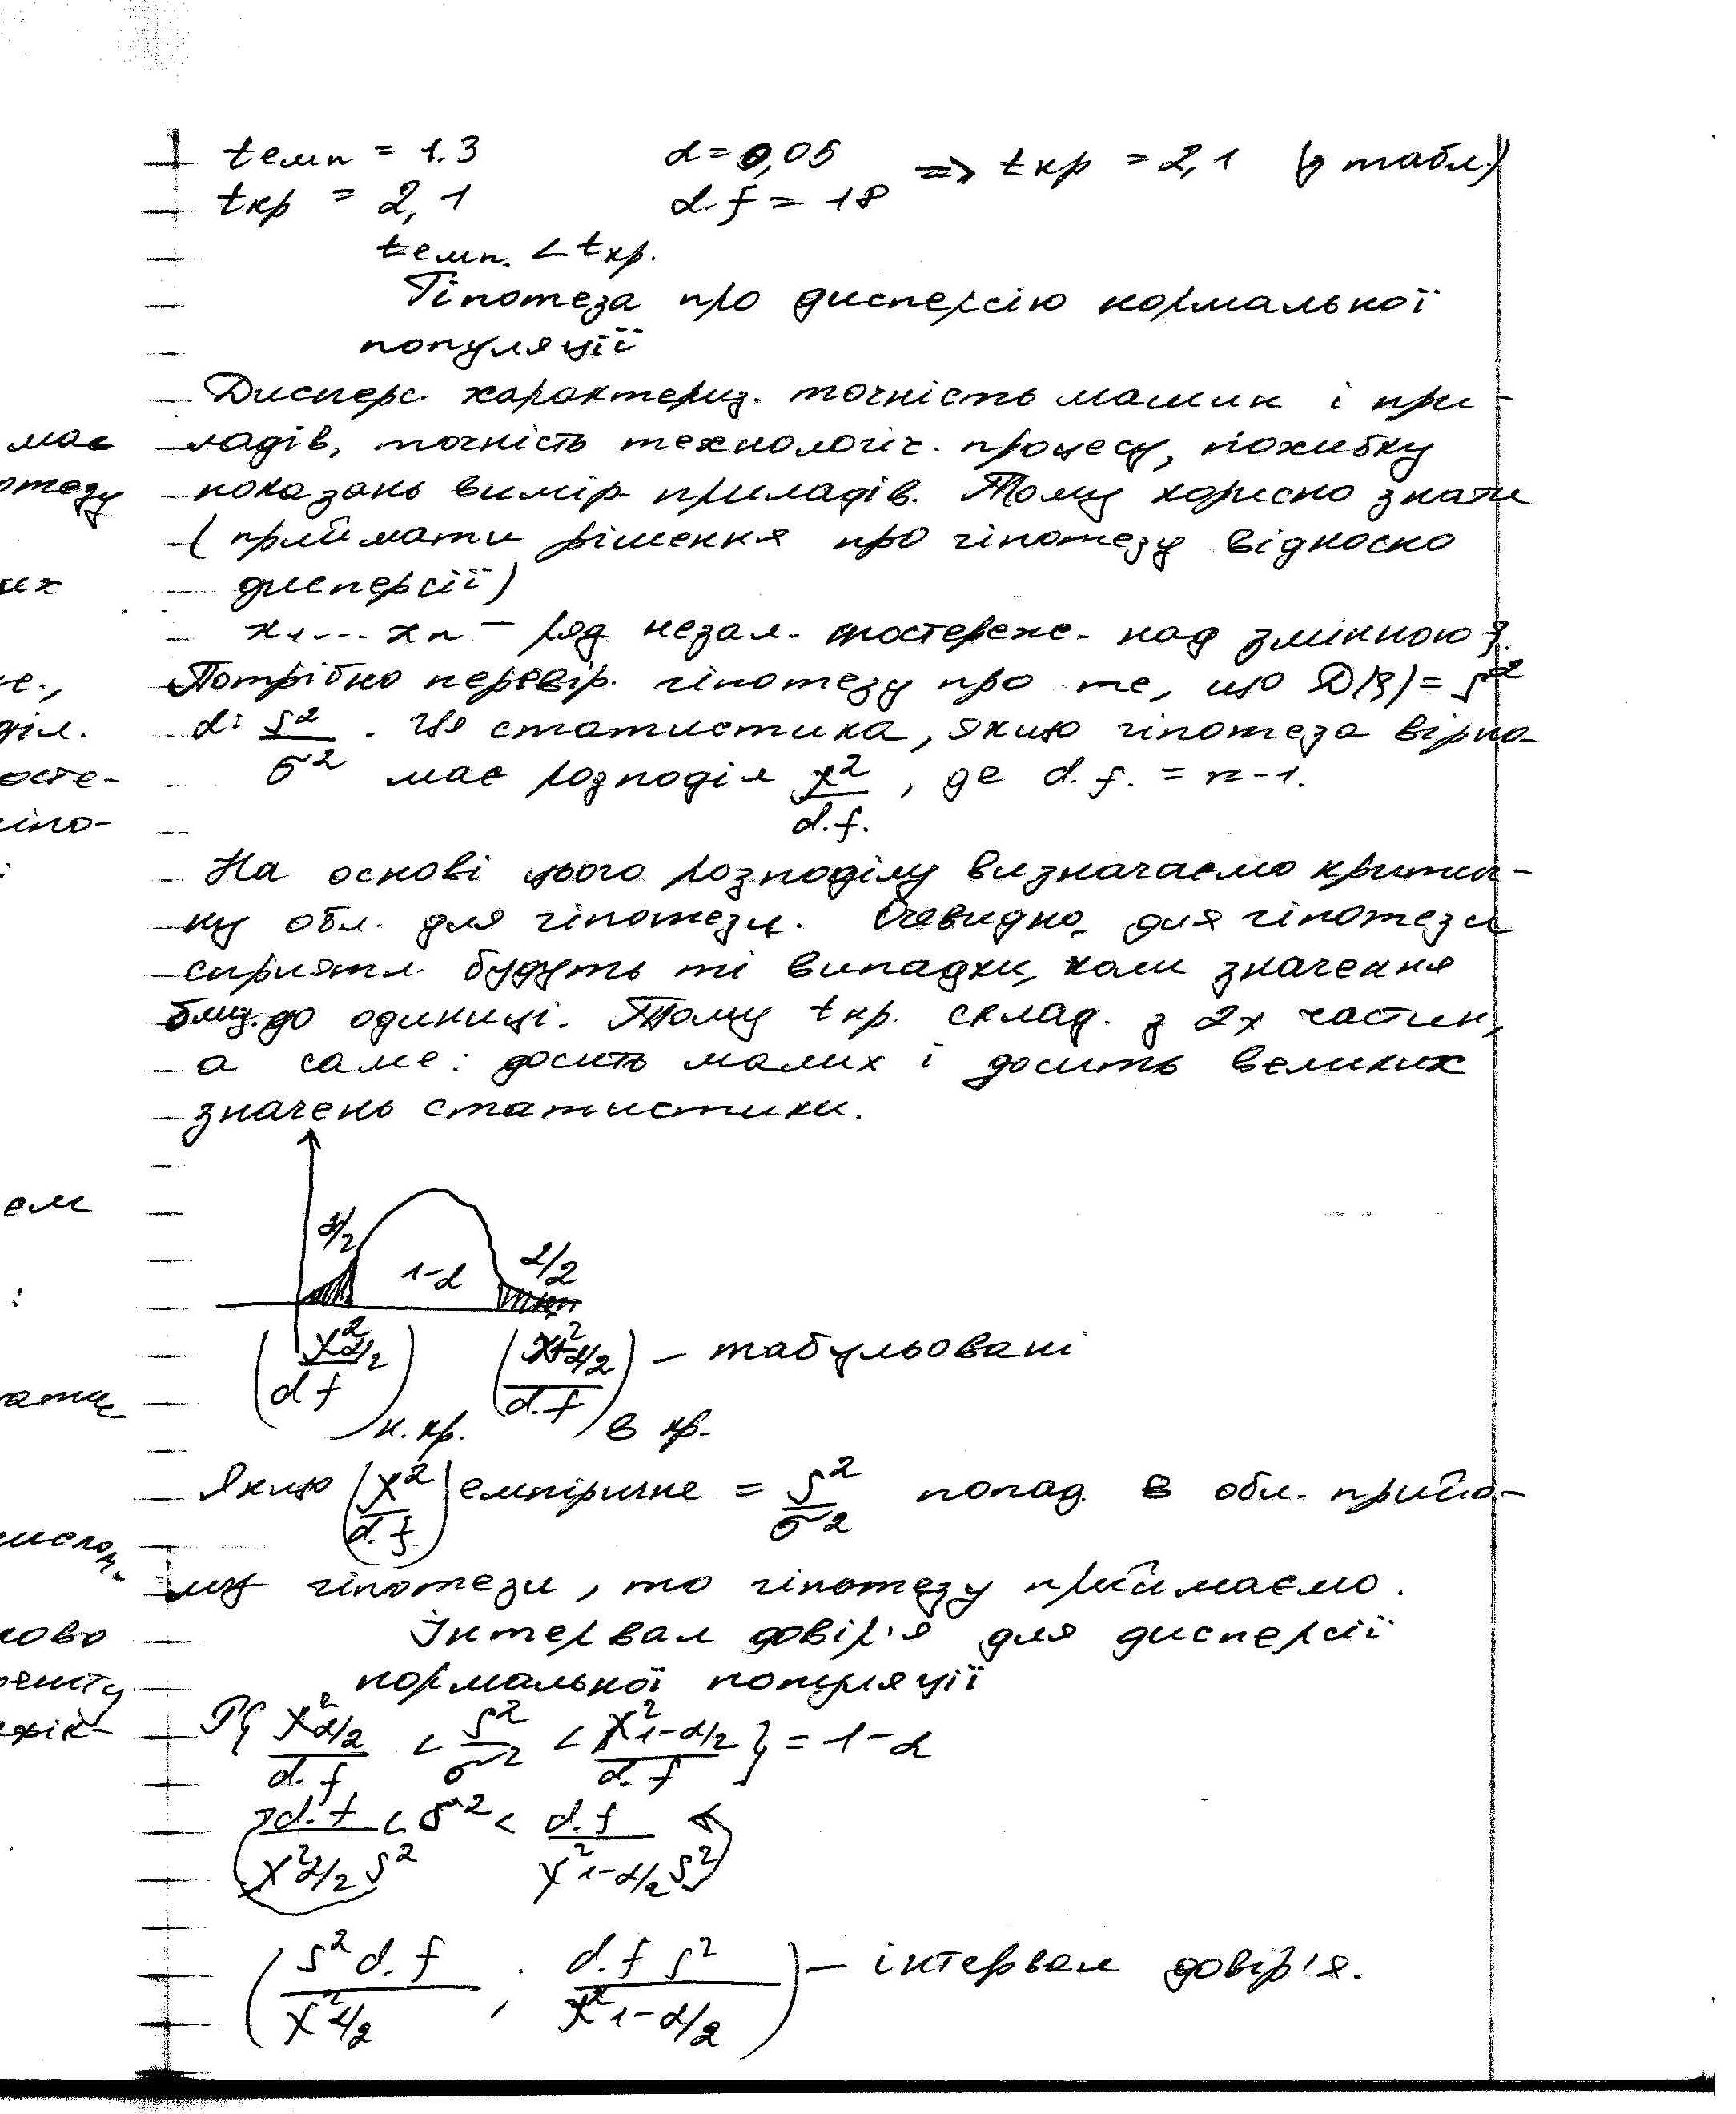 tемп = 1.3   α = 0,05   => tкр = 2,1 (з табл.)
tкр = 2,1   d.f = 18
tемп. < tкр.
Гіпотеза про дисперсію нормальної
популяції
Дисперс. характериз. точність машин і при-
має ладів, точність технологіч. процесу, похибку
отезу показань вимір. приладів. Тому корисно знати
(приймати рішення про гіпотезу відносно
их дисперсії)
x1....xn – ряд незал. спостереже. над змінною ξ.
Потрібно перевір. гіпотезу про те, що D(ξ) = s²
діл. d: s²/σ². Ця статистика, якщо гіпотеза вірна
осте- має розподіл χ²/d.f., де d.f. = n-1.
іпо-
На основі цього розподілу визначаємо критич-
ну обл. для гіпотези. Очевидно, для гіпотези
сприятл. будуть ті випадки, коли значення
близ. до одиниці. Тому tкр. склад. з 2х частин,
а саме: досить малих і досить великих
значень статистики.
α/2   1-α   α/2
(χ²α/2 / d f)н.кр.   (χ²1-α/2 / d.f)в кр. – табульовані
Якщо (χ²/d.f) емпіричне = s²/σ² попад. в обл. прийо-
му гіпотези, то гіпотезу приймаємо.
ково Інтервал довір'я для дисперсії
нормальної популяції
P{χ²α/2 / d.f < s²/σ² < χ²1-α/2 / d.f} = 1-α
d.f / χ²α/2 s² < σ² < d.f / χ²1-α/2 s²
(s² d.f / χ²α/2 ; d.f s² / χ²1-α/2) – інтервал довір'я.